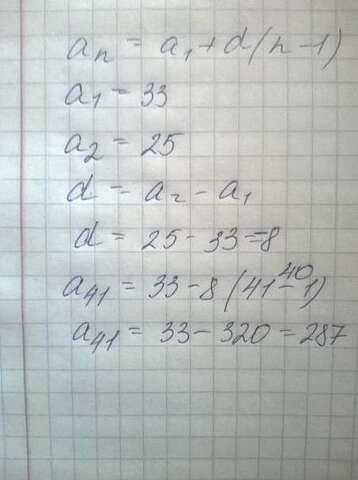 aₙ = a₁ + d(n - 1)
a₁ = 33
a₂ = 25
d = a₂ - a₁
d = 25 - 33 = -8
40
a₄₁ = 33 - 8 (41 - 1)
a₄₁ = 33 - 320 = 287